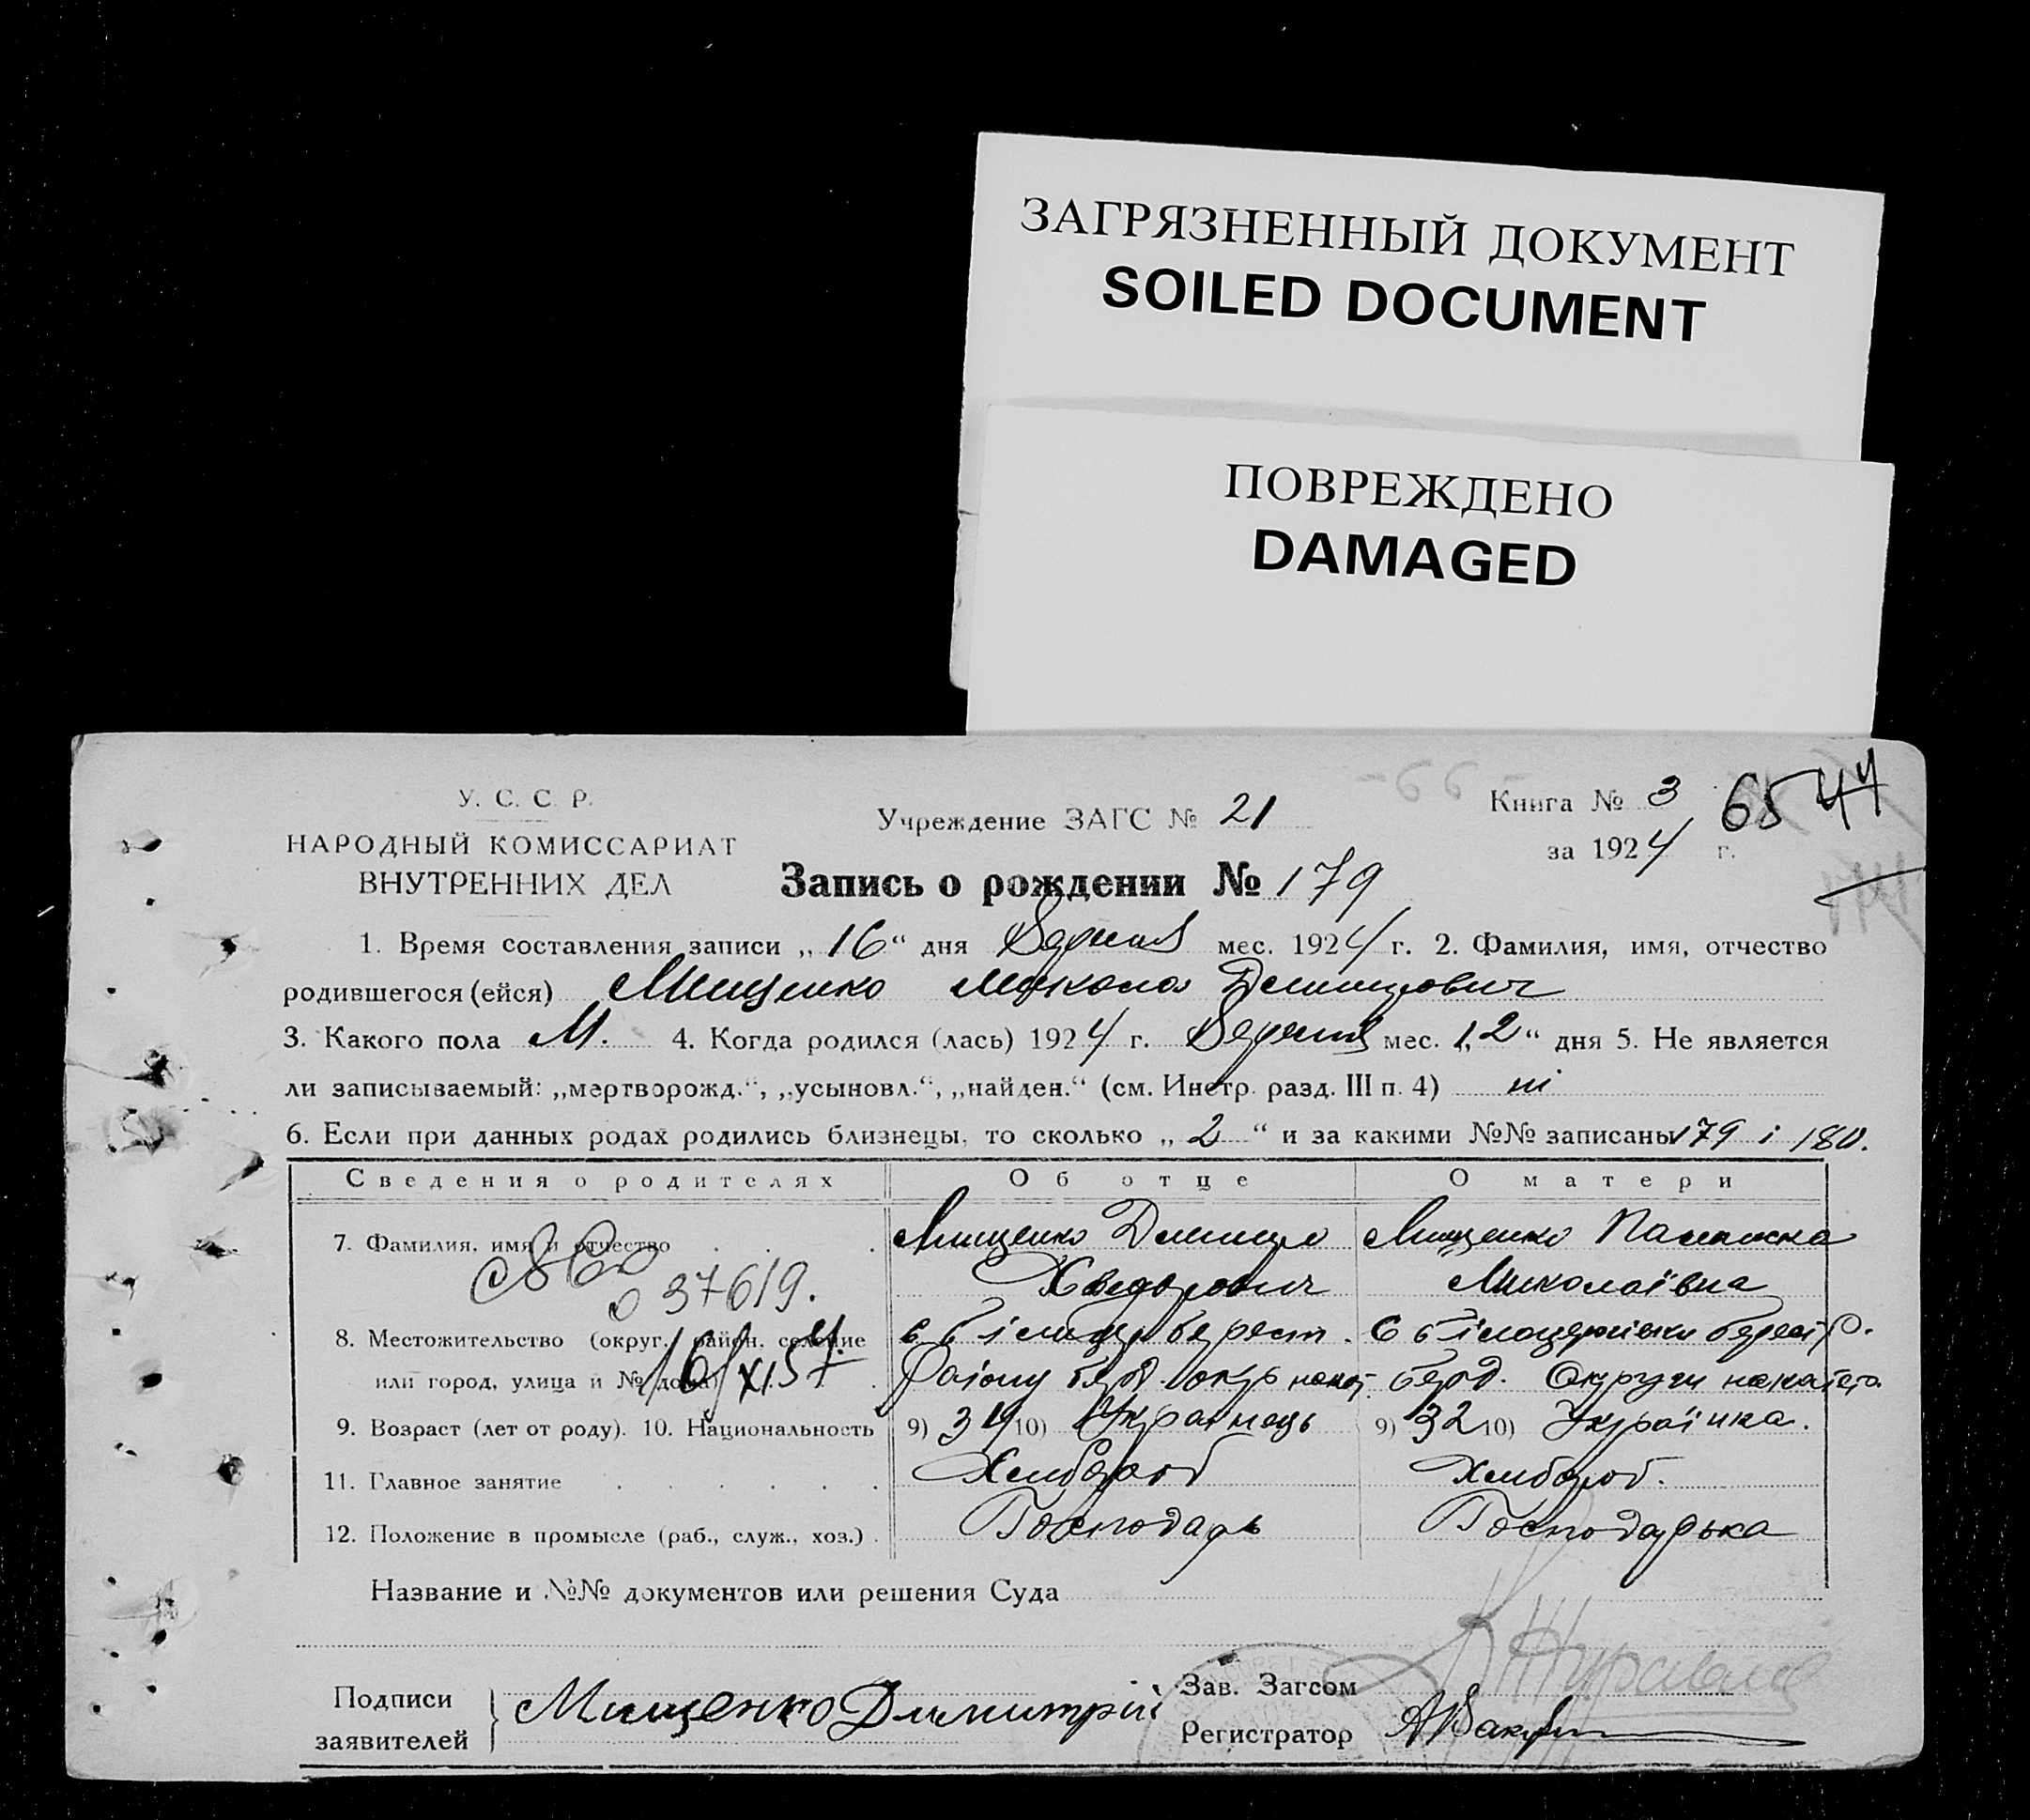 ЗАГРЯЗНЕННЫЙ ДОКУМЕНТ
SOILED DOCUMENT
ПОВРЕЖДЕНО
DAMAGED
У. С. С. Р.
НАРОДНЫЙ КОМИССАРИАТ
ВНУТРЕННИХ ДЕЛ
Учреждение ЗАГС № 21
Книга № 3
6544
за 1924 г.
Запись о рождении № 179
1. Время составления записи „16“ дня мес. 1924 г. 2. Фамилия, имя, отчество
родившегося (ейся) Мищенко Микола Дмитрович
3. Какого пола М. 4. Когда родился (лась) 1924 г. мес. „12“ дня 5. Не является
ли записываемый: „мертворожд.“, „усыновл.“, „найден.“ (см. Инстр. разд. III п. 4) ні
6. Если при данных родах родились близнецы, то сколько „2“ и за какими №№ записаны 179 і 180.
Сведения о родителях Об отце О матери
7. Фамилия, имя и отчество Мищенко Дмитро Мищенко
Хведорович Миколаївна
37619.
8. Местожительство (округ, район, селение
или город, улица и № дома) Району Округи
9. Возраст (лет от роду). 10. Национальность 9) 34 10) Українець 9) 32 10) Українка.
11. Главное занятие Хлибороб Хлибороб.
12. Положение в промысле (раб., служ., хоз.) Господарь Господарька
Название и №№ документов или решения Суда
Подписи
заявителей
Мищенко Димитрій
Зав. Загсом
Регистратор